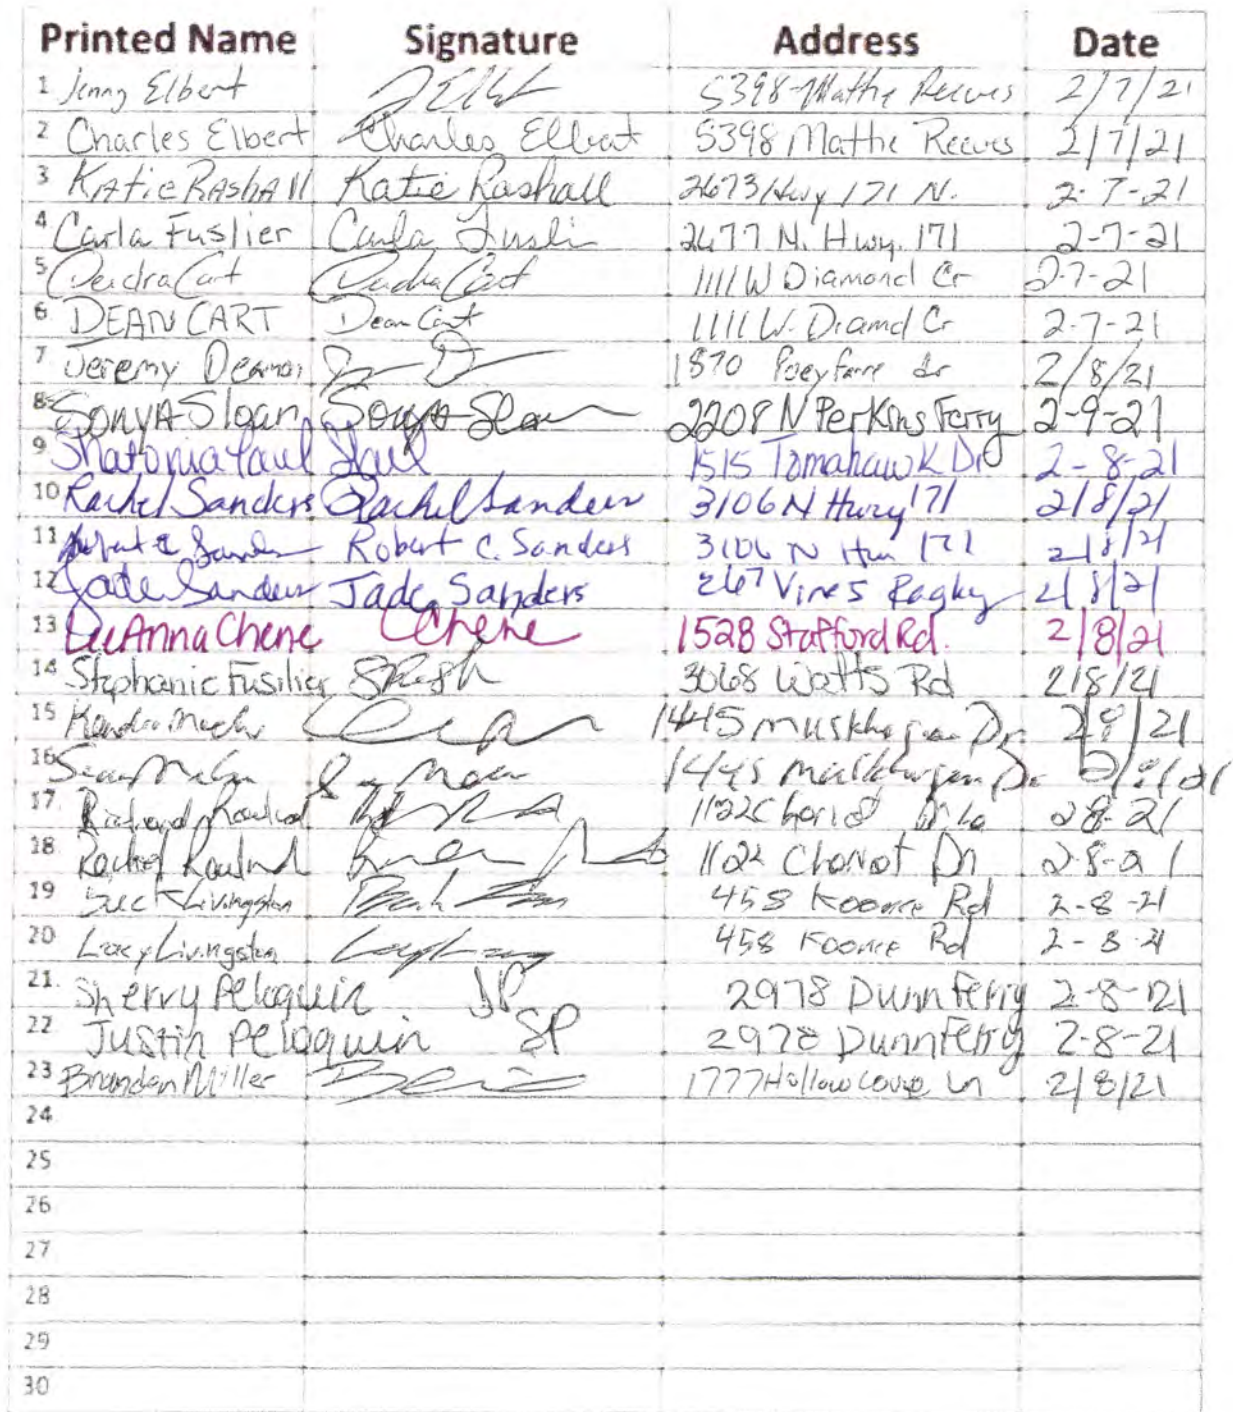 Printed Name Signature Address Date
1 Jenny Elbert 5398 Mattie Reeves 2/7/21
2 Charles Elbert Charles Elbert 5398 Mattie Reeves 2/7/21
3 KAtie RAshAll Katie Rashall 2673 Hwy 171 N. 2-7-21
4 Carla Fuslier Carla Fusli 2677 N. Hwy. 171 2-7-21
5 Deidra Cart Deidra Cart 1111 W Diamond Cr 2-7-21
6 DEAN CART Dean Cart 1111 W. Diamd Cr 2-7-21
7 Jeremy 1570 dr 2/8/21
8 SonyA Sloan Sonya Sloan 2208 N Perkins Ferry 2-9-21
9 Shatonia Paul SPaul 1515 Tomahawk Dr 2-8-21
10 Rachel Sanders Rachel Sanders 3106 N Hwy 171 2/8/21
11 Robert C Sanders Robert C. Sanders 3106 N 171 2/8/21
12 Jade Sanders Jade Sanders 267 Vines 2/8/21
13 LeeAnna Chene LChene 1528 Stafford Rd. 2/8/21
14 Stephanie Fusilier 3068 Watts Rd 2/8/21
15 Kendra 1445 Dr 2/8/21
16 Sean 1445 Dr
17 Richard 1122 2-8-21
18 Rachel 1122 Chariot Dr 2-8-21
19 Livingston 458 Koonce Rd 2-8-21
20 Lacy Livingston 458 Koonce Rd 2-8-21
21. Sherry Peloquin 2978 Dunn Ferry 2-8-21
22 Justin Peloquin 2978 Dunn Ferry 2-8-21
23 Brandon Miller 1777 Hollow Cove Ln 2/8/21
24
25
26
27
28
29
30